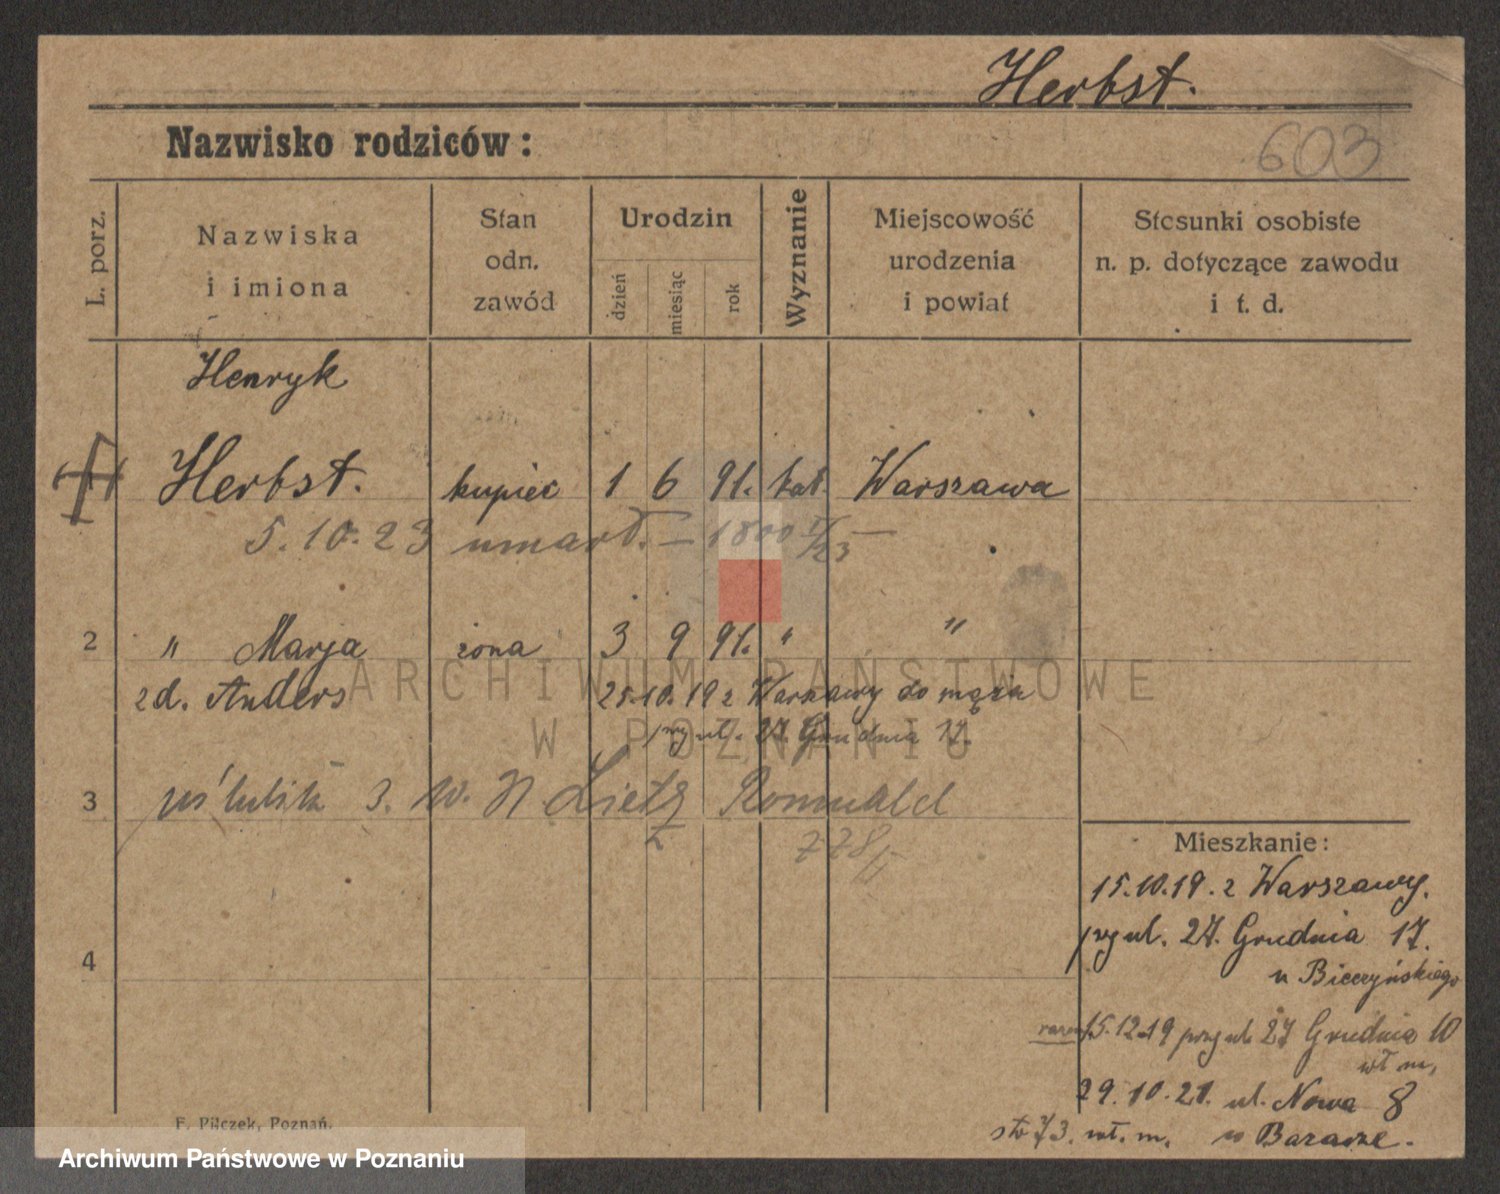 Herbst.
Nazwisko rodziców:
603
L. porz.
Nazwiska
i imiona
Stan
odn.
zawód
Urodzin
dzień
miesiąc
rok
Wyznanie
Miejscowość
urodzenia
i powiat
Stosunki osobiste
n. p. dotyczące zawodu
i t. d.
Henryk
Herbst. kupiec 1 6 91. kat. Warszawa
5.10.23 umarł. — 1800 V/23 —
2 " Marja żona 3 9 91. " "
zd. Anders 25.10.19 z Warszawy do męża
przy ul. 27. Grudnia 17.
3 3. w. Lietz Romuald
778/V
4
Mieszkanie:
15.10.19. z Warszawy.
przy ul. 27. Grudnia 17.
u Bieczyńskiego
razem 15.12.19 przy ul. 27 Grudnia 10
wł m,
29.10.21. ul. Nowa 8
str 73. wł. m. w Bazarze.
F. Pilczek, Poznań.
ARCHIWUM PAŃSTWOWE
W POZNANIU
Archiwum Państwowe w Poznaniu